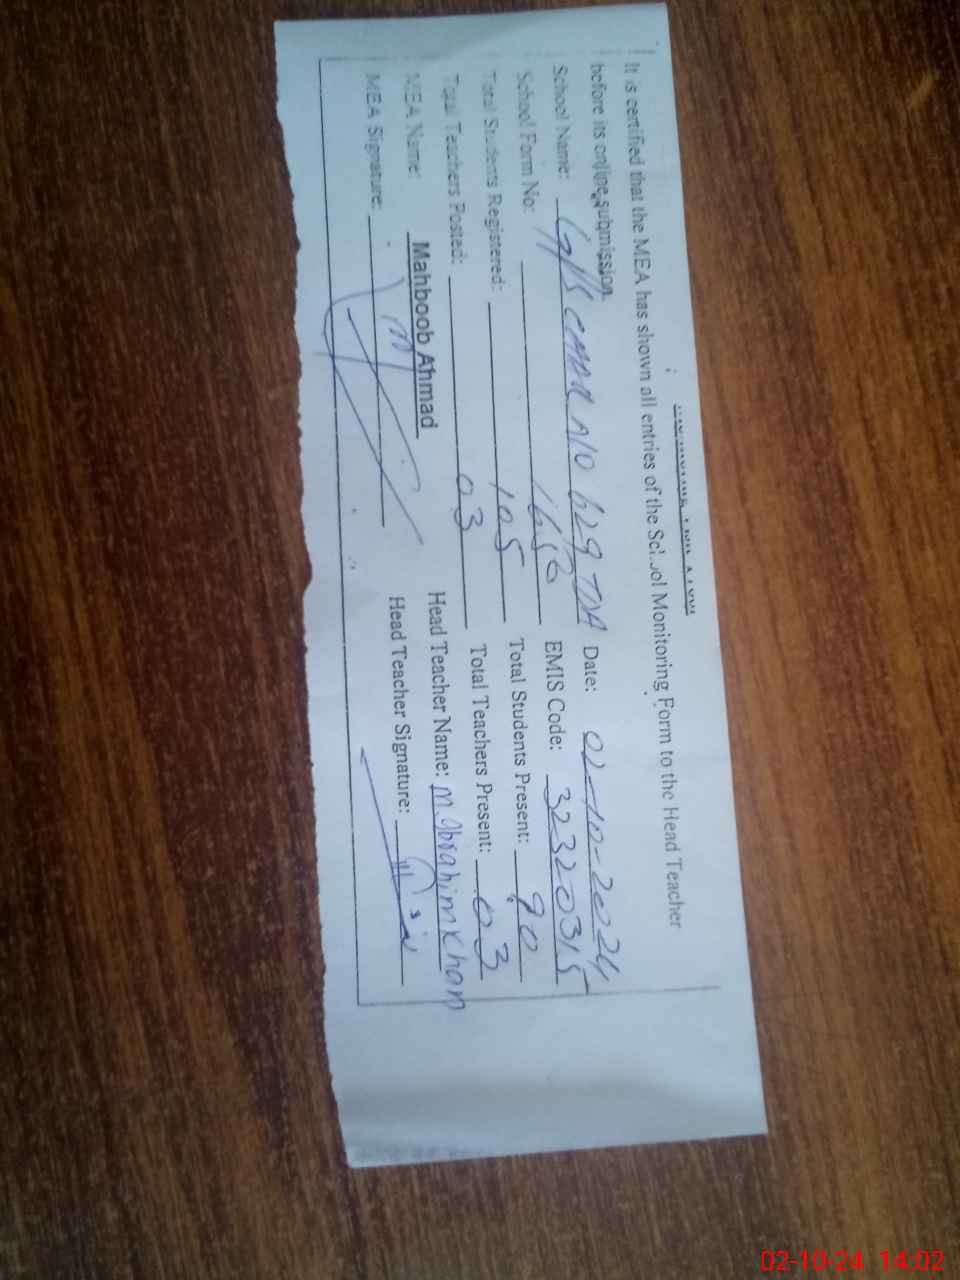 It is certified that the MEA has shown all entries of the School Monitoring Form to the Head Teacher
before its online submission
School Name: GPS CHAK NO 629 TDA Date: 02-10-2024
School Form No: 1656 EMIS Code: 32320315
Total Students Registered: 105 Total Students Present: 90
Total Teachers Posted: 03 Total Teachers Present: 03
MEA Name: Mahboob Ahmad Head Teacher Name: M. Ibrahim Khan
MEA Signature: Head Teacher Signature:
02-10-24 14:02